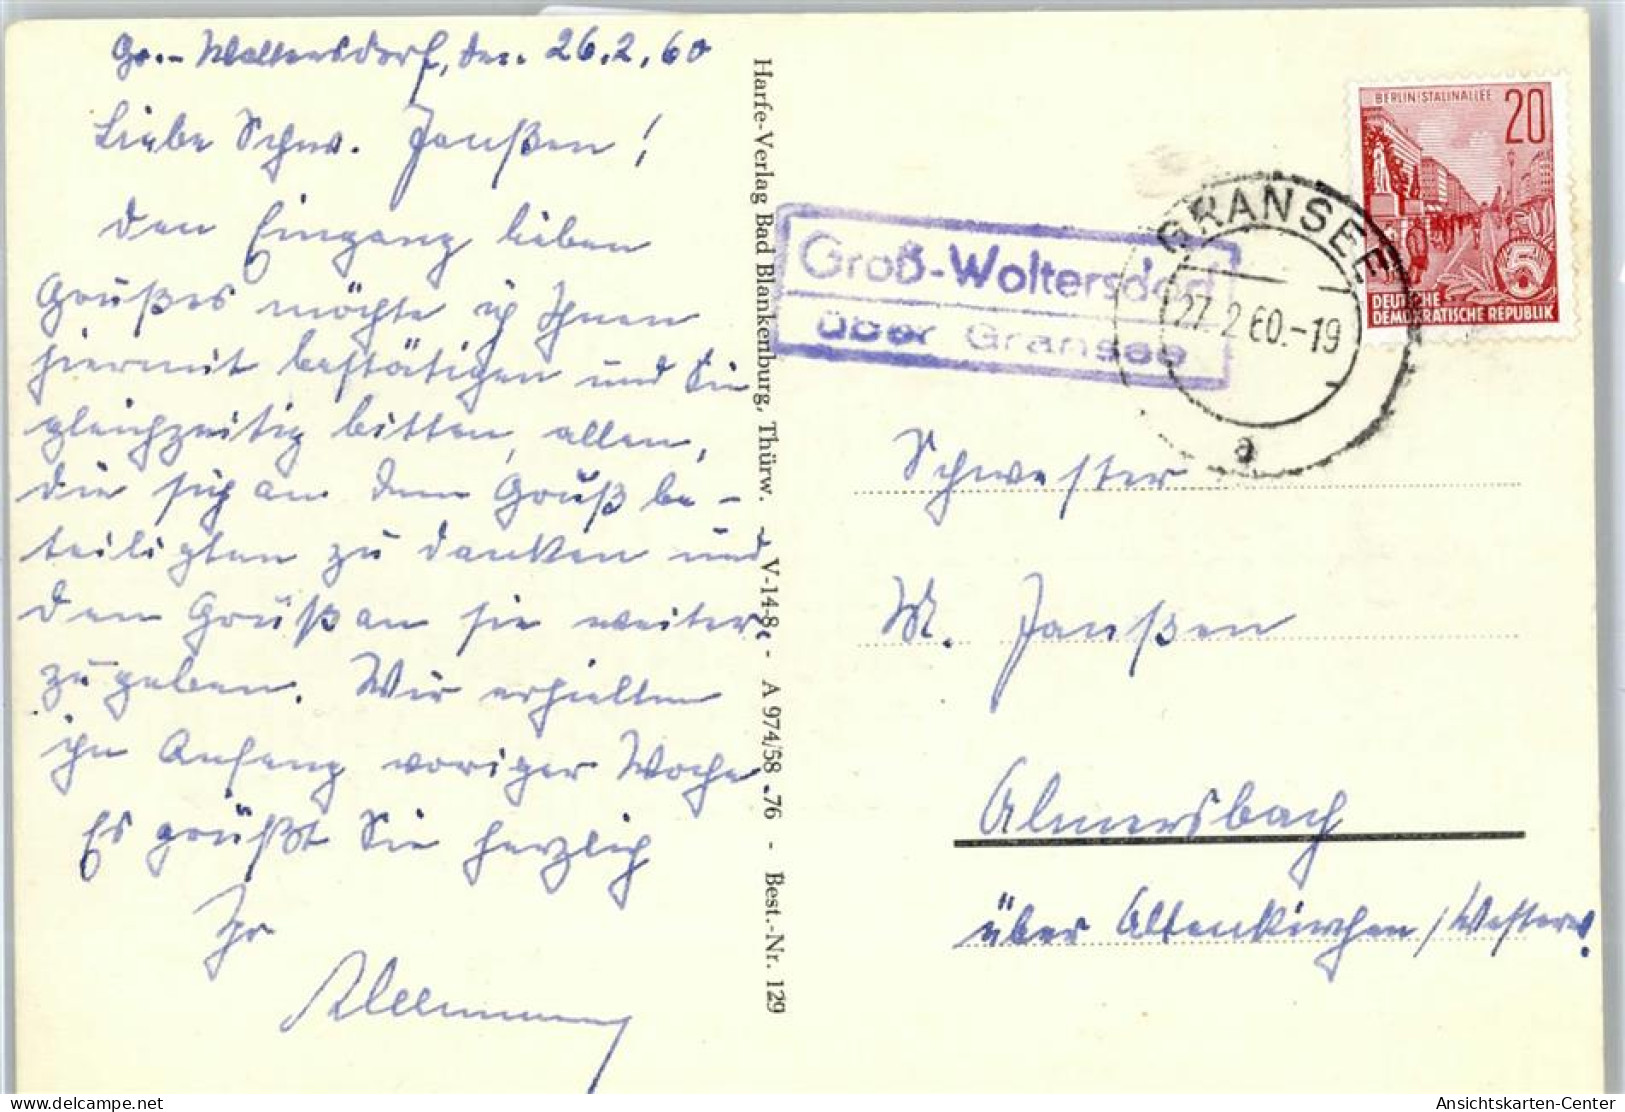 Gr.- Woltersdorf, den 26.2.60
Liebe Schw. Janßen!
Den Eingang lieben
Grußes möchte ich Ihnen
hiermit bestätigen und Sie
gleichzeitig bitten, allen,
die sich an dem Gruß be-
teiligten zu danken und
den Gruß an sie weiter
zugeben. Wir erhielten
ihn Anfang voriger Woche
Es grüßt Sie herzlich
Ihr
Harfe-Verlag Bad Blankenburg, Thürw. - V-14-8 - A 974/58 .76 - Best.-Nr. 129
Groß-Woltersdorf
über Gransee
GRANSEE
27.2.60.-19
a
BERLIN-STALINALLEE
20
5
DEUTSCHE
DEMOKRATISCHE REPUBLIK
Schwester
M. Janßen
Almersbach
über Altenkirchen/Westerw.
delcampe.net
Ansichtskarten-Center